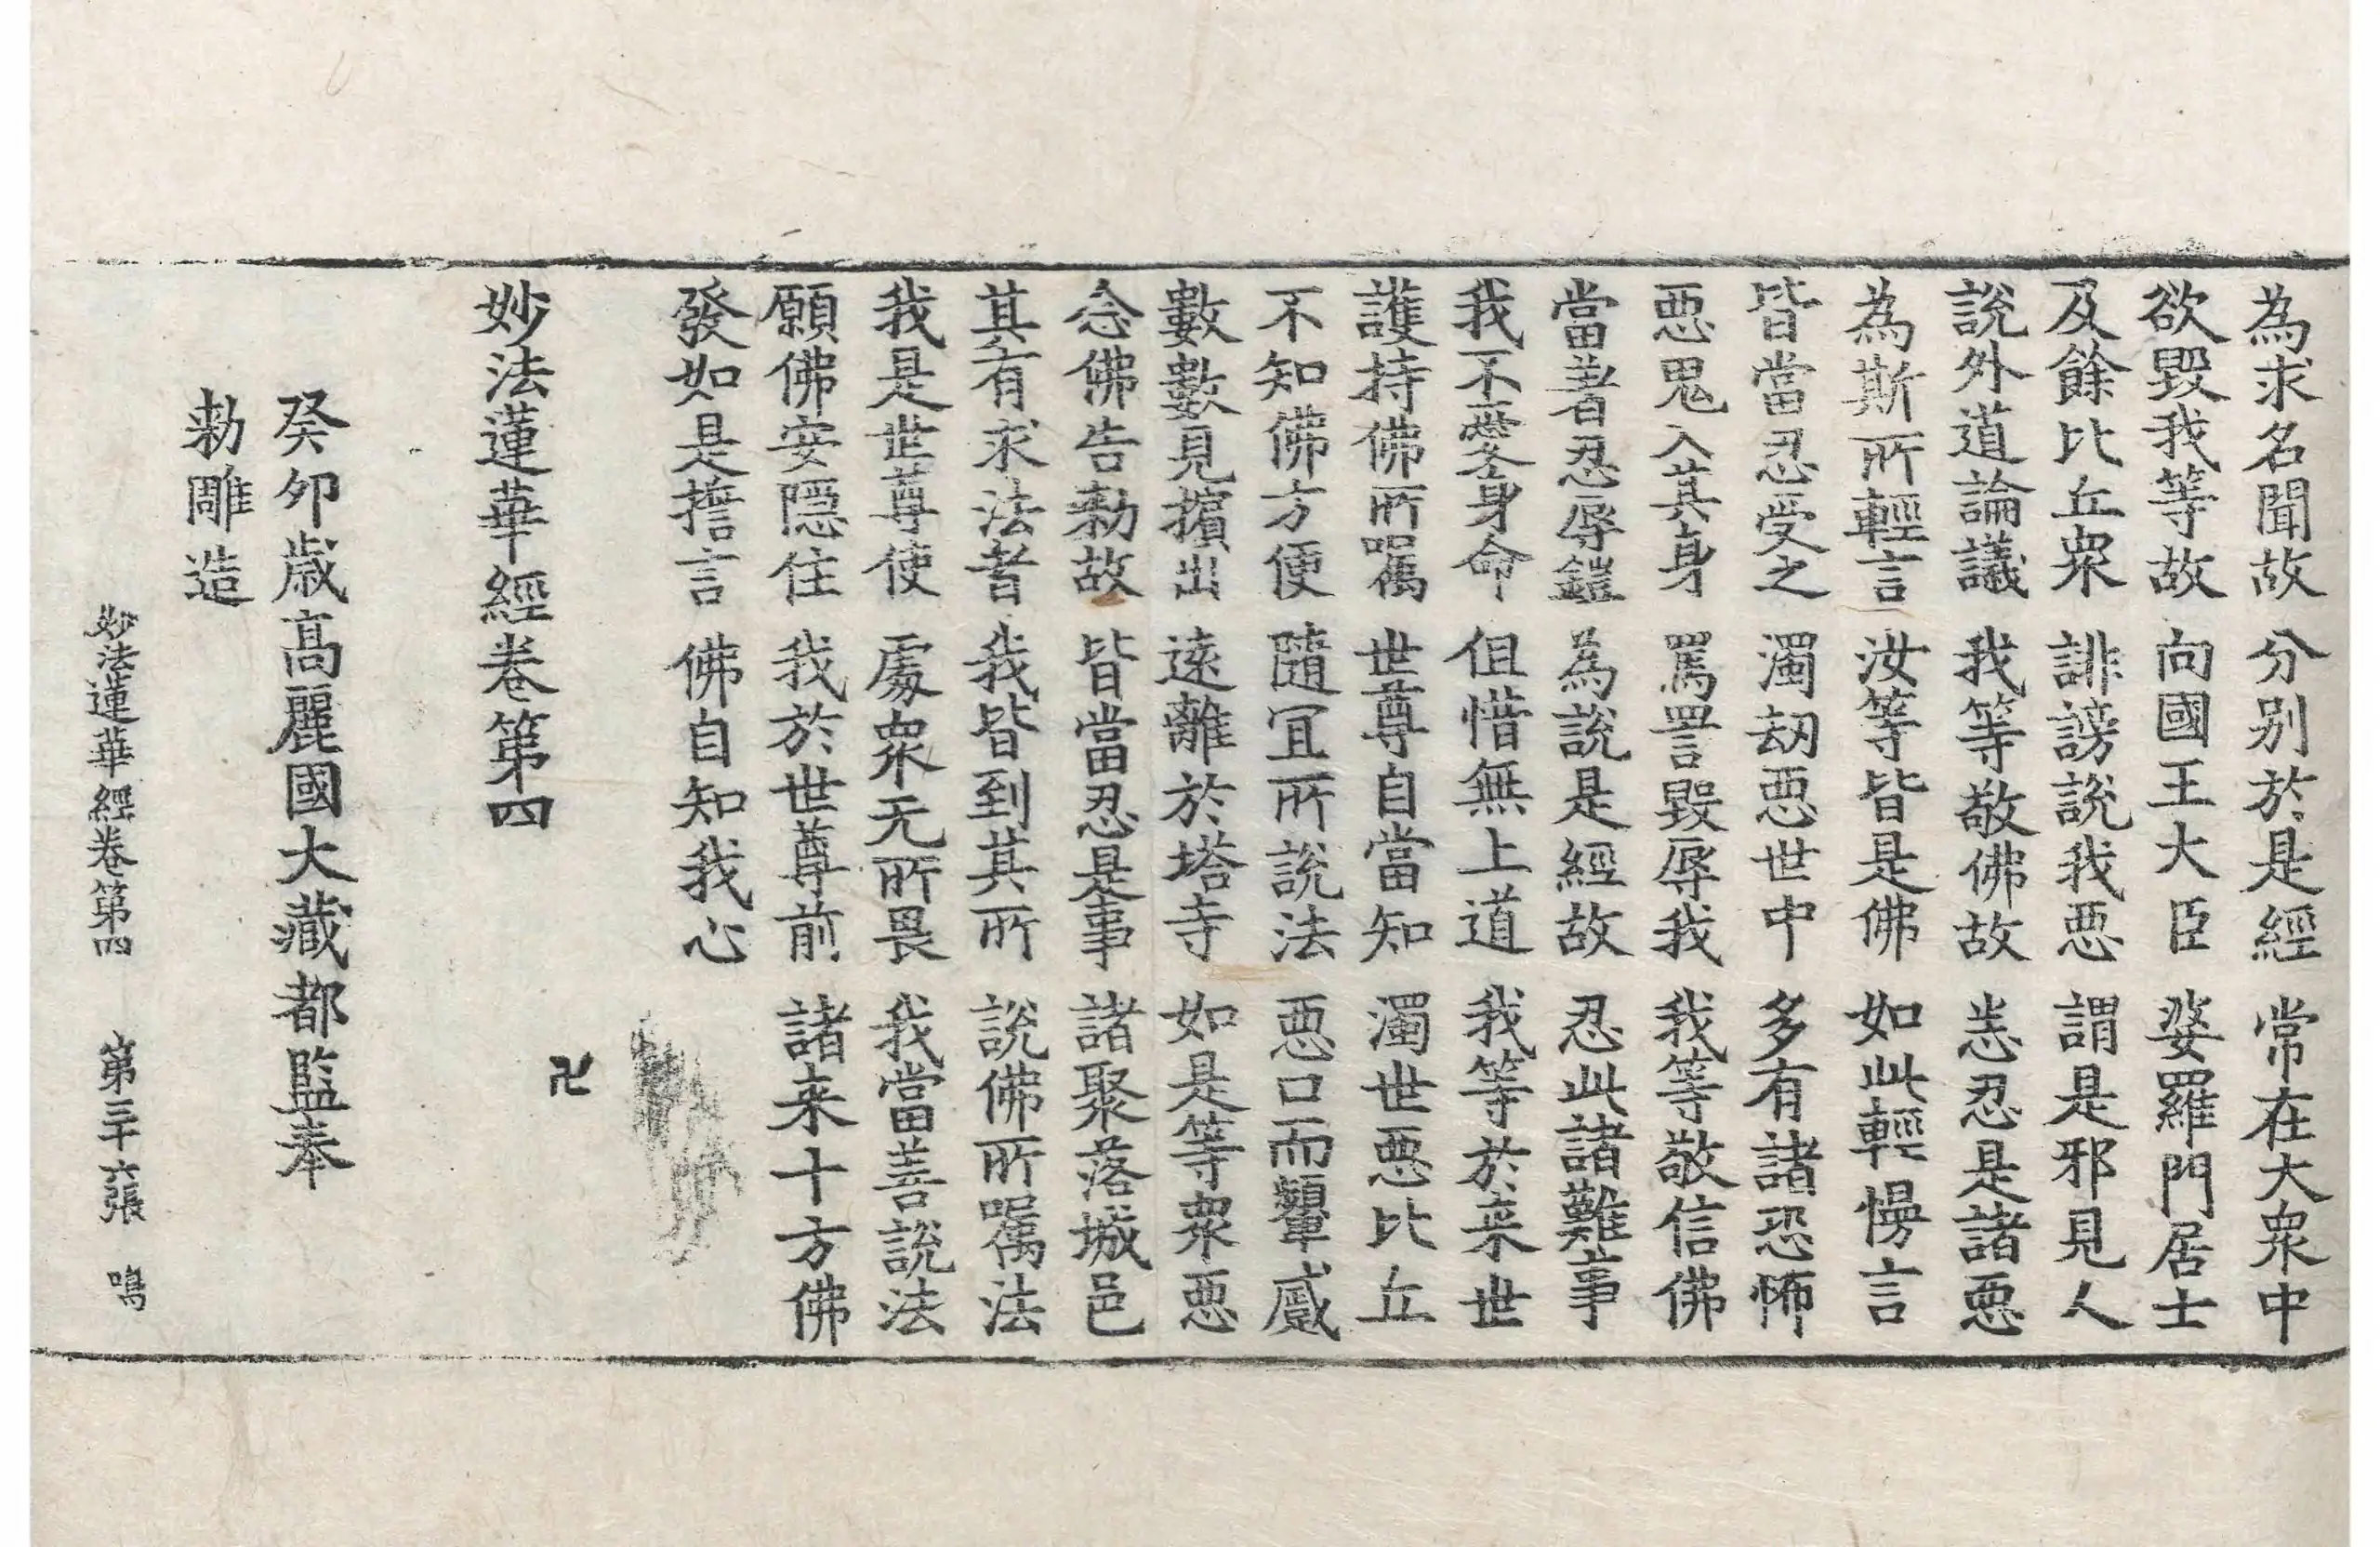 為求名聞故 分別於是經 常在大衆中
欲毀我等故 向國王大臣 婆羅門居士
及餘比丘衆 誹謗說我惡 謂是邪見人
說外道論議 我等敬佛故 悉忍是諸惡
為斯所輕言 汝等皆是佛 如此輕慢言
皆當忍受之 濁劫惡世中 多有諸恐怖
惡鬼入其身 罵詈毀辱我 我等敬信佛
當著忍辱鎧 為說是經故 忍此諸難事
我不愛身命 但惜無上道 我等於来世
護持佛所囑 世尊自當知 濁世惡比丘
不知佛方便 隨冝所說法 惡口而顰蹙
數數見擯出 遠離於塔寺 如是等衆惡
念佛告勅故 皆當忍是事 諸聚落城邑
其有求法者 我皆到其所 說佛所囑法
我是世尊使 處衆无所畏 我當善說法
願佛安隱住 我於世尊前 諸来十方佛
發如是誓言 佛自知我心
妙法蓮華經卷第四
卍
癸卯歳高麗國大藏都監奉
勅雕造
妙法蓮華經卷第四 第三十六張 鳴